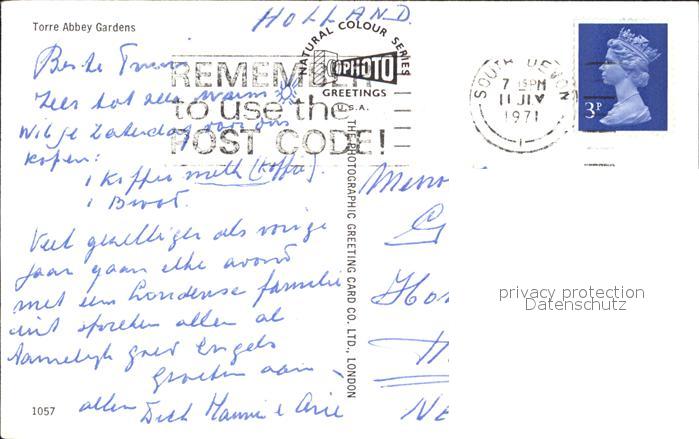 Torre Abbey Gardens
HOLLAND.
NATURAL COLOUR SERIES
PHOTO
GREETINGS
U.S.A.
REMEMBER
to use the
POST CODE!
SOUTH DEVON
7 15PM
11 JLY
1971
3P
Beste
Zeer hot
Wil je Zaterdag voor ons
kopen:
1 Koffie melk (Koffie).
1 Brood.
Veel gezelliger als vorige
jaar gaan elke avond
met een Londense familie
uit spreken allen al
tamelijk goed Engels
Groeten aan
allen Dick Mannie & Arie
THE PHOTOGRAPHIC GREETING CARD CO. LTD., LONDON
1057
privacy protection
Datenschutz